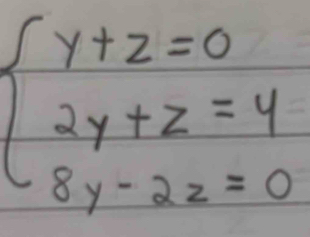 y + z = 0
2y + z = 4
8y - 2z = 0